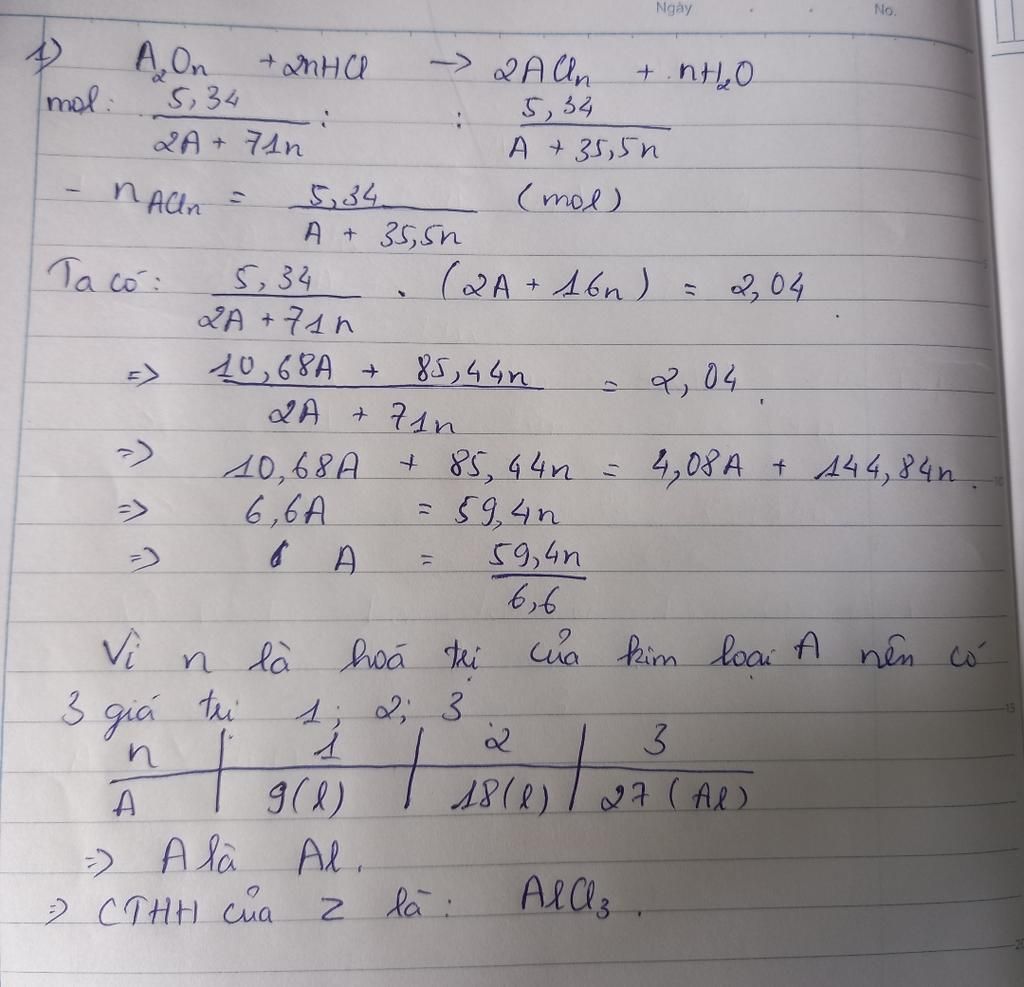 Ngày No.
1) A₂Oₙ + 2nHCl → 2AClₙ + nH₂O
mol: 5,34/(2A + 71n) : : 5,34/(A + 35,5n)
- n AClₙ = 5,34/(A + 35,5n) (mol)
Ta có: 5,34/(2A + 71n) . (2A + 16n) = 2,04
=> (10,68A + 85,44n)/(2A + 71n) = 2,04.
=> 10,68A + 85,44n = 4,08A + 144,84n.
=> 6,6A = 59,4n
=> A = 59,4n/6,6
Vì n là hoá trị của kim loại A nên có
3 giá trị 1; 2; 3
n | 1 | 2 | 3
A | 9(l) | 18(l) | 27 (Al)
=> A là Al.
=> CTHH của Z là: AlCl₃.